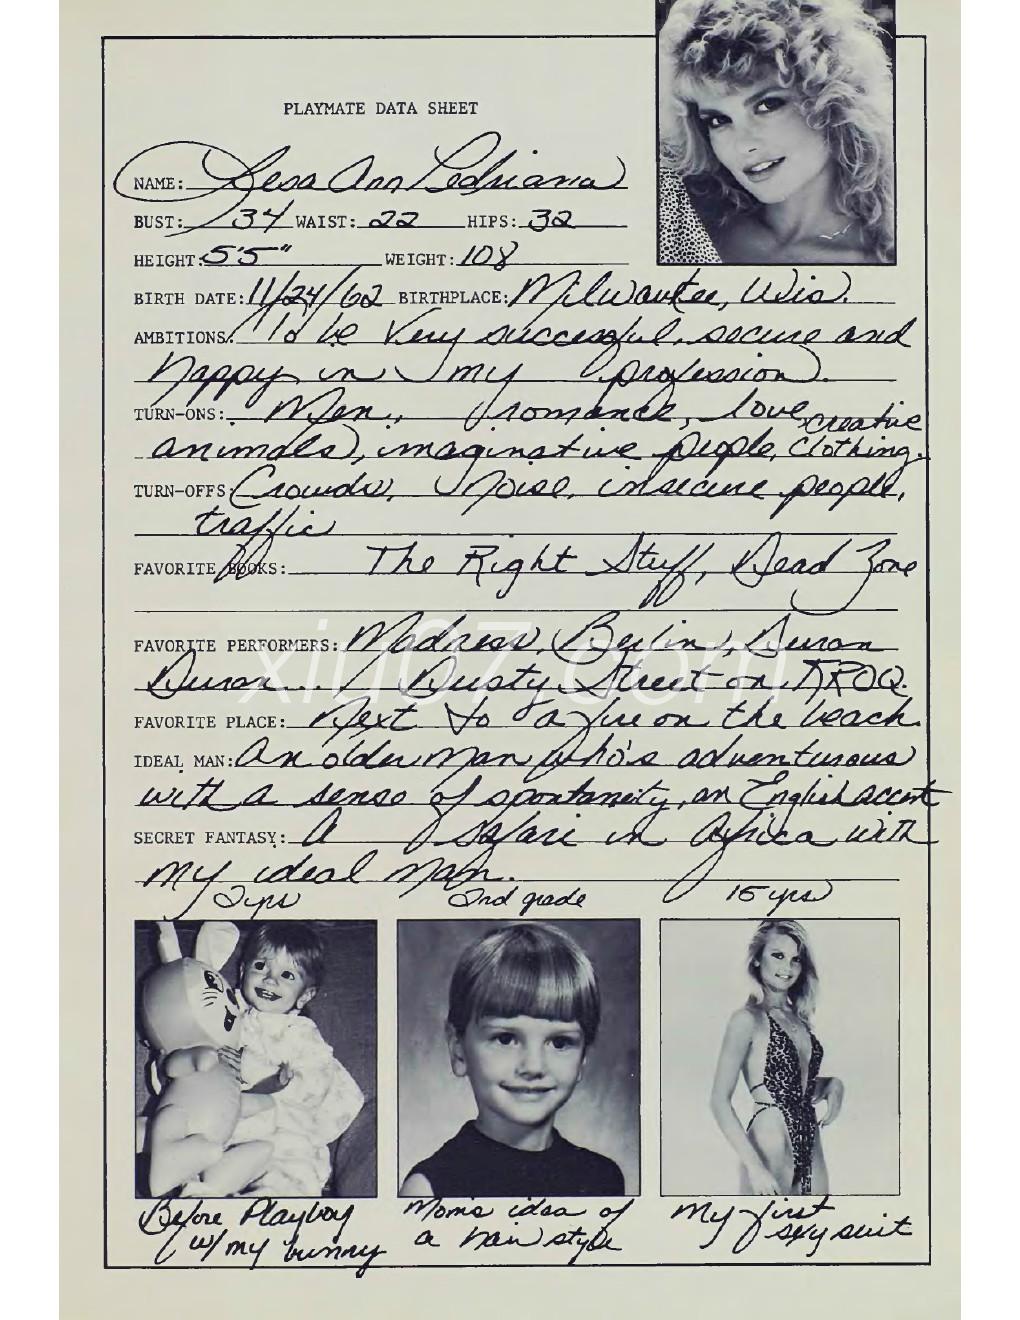 PLAYMATE DATA SHEET
NAME: Lesa Ann Pedriana
BUST: 34 WAIST: 22 HIPS: 32
HEIGHT: 5'5" WEIGHT: 108
BIRTH DATE: 11/24/62 BIRTHPLACE: Milwaukee, Wis.
AMBITIONS: To be very successful, secure and
happy in my profession.
TURN-ONS: Men, romance, love, creative
animals, imaginative people, clothing.
TURN-OFFS: Crowds, noise, insecure people,
traffic
FAVORITE BOOKS: The Right Stuff, Dead Zone
FAVORITE PERFORMERS: Madness, Berlin, Duran
Duran... Dusty Street on KROQ.
FAVORITE PLACE: Next to a fire on the beach.
IDEAL MAN: An older man who's adventurous
with a sense of spontaneity, an English accent
SECRET FANTASY: A safari in Africa with
my ideal man.
2 yrs 2nd grade 15 yrs
Before Playboy Mom's idea of My first
w/ my bunny a hair style sexy suit
xiu07.com